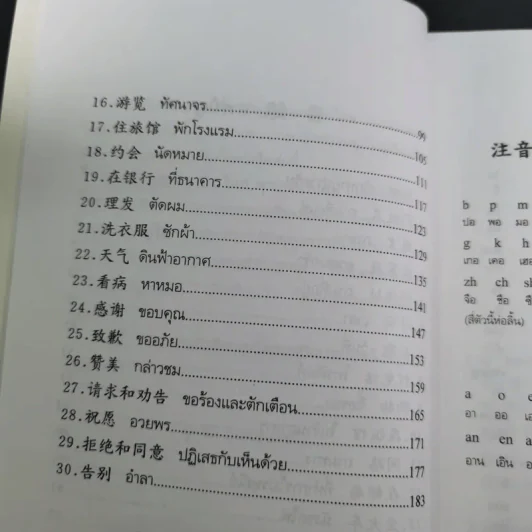 16.游览 ทัศนาจร................99
17.住旅馆 พักโรงแรม................105
18.约会 นัดหมาย................111
19.在银行 ที่ธนาคาร................117
20.理发 ตัดผม................123
21.洗衣服 ซักผ้า................129
22.天气 ดินฟ้าอากาศ................135
23.看病 หาหมอ................141
24.感谢 ขอบคุณ................147
25.致歉 ขออภัย................153
26.赞美 กล่าวชม................159
27.请求和劝告 ขอร้องและตักเตือน................165
28.祝愿 อวยพร................171
29.拒绝和同意 ปฏิเสธกับเห็นด้วย................177
30.告别 อำลา................183
注音
b p m
ปอ พอ มอ
g k h
เกอ เคอ เฮอ
zh ch sh
จือ ชือ
(สี่ตัวนี้ห่อลิ้น)
a o e
อา ออ เอ
an en a
อาน เอิน อ